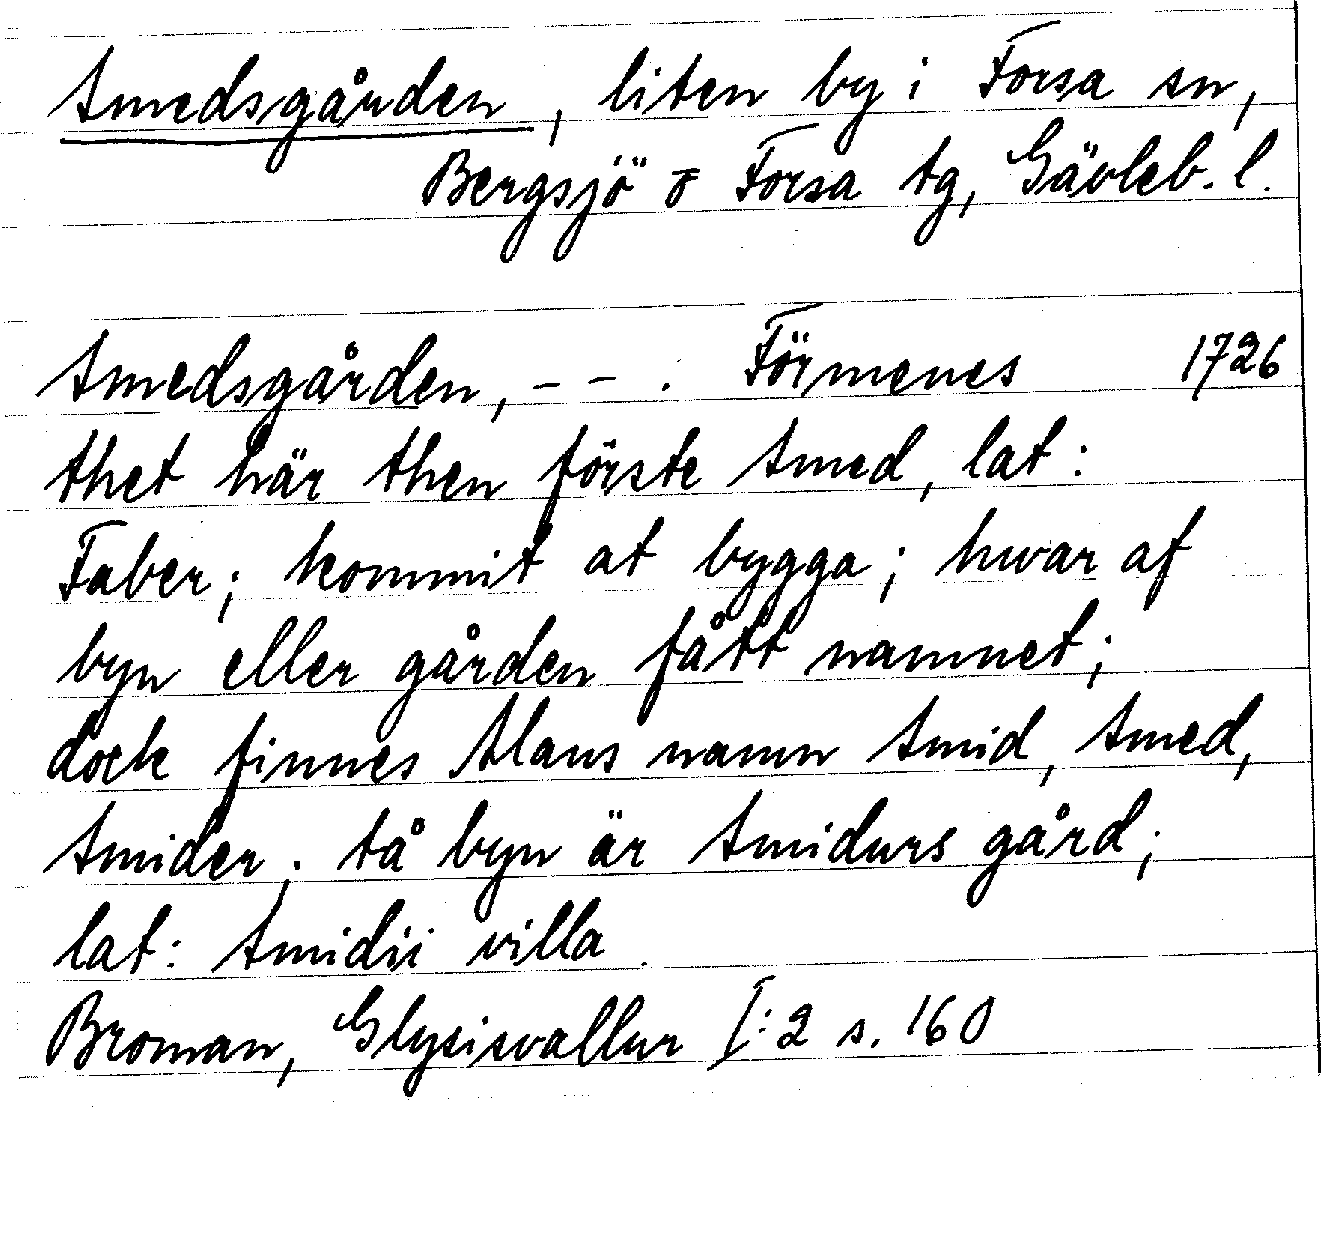 Smedsgården, liten by i Forsa sn,
Bergsjö o Forsa tg, Gävleb. l.
Smedsgården, - - . Förmenes 1726
thet här then förste Smed, lat:
Faber; kommit at bygga; hwar af
byn eller gården fått namnet;
dock finnes Mans namn Smid, Smed,
Smider. Så byn är Smidurs gård;
lat: Smidii villa.
Broman, Glysisvallur I:2 s. 160